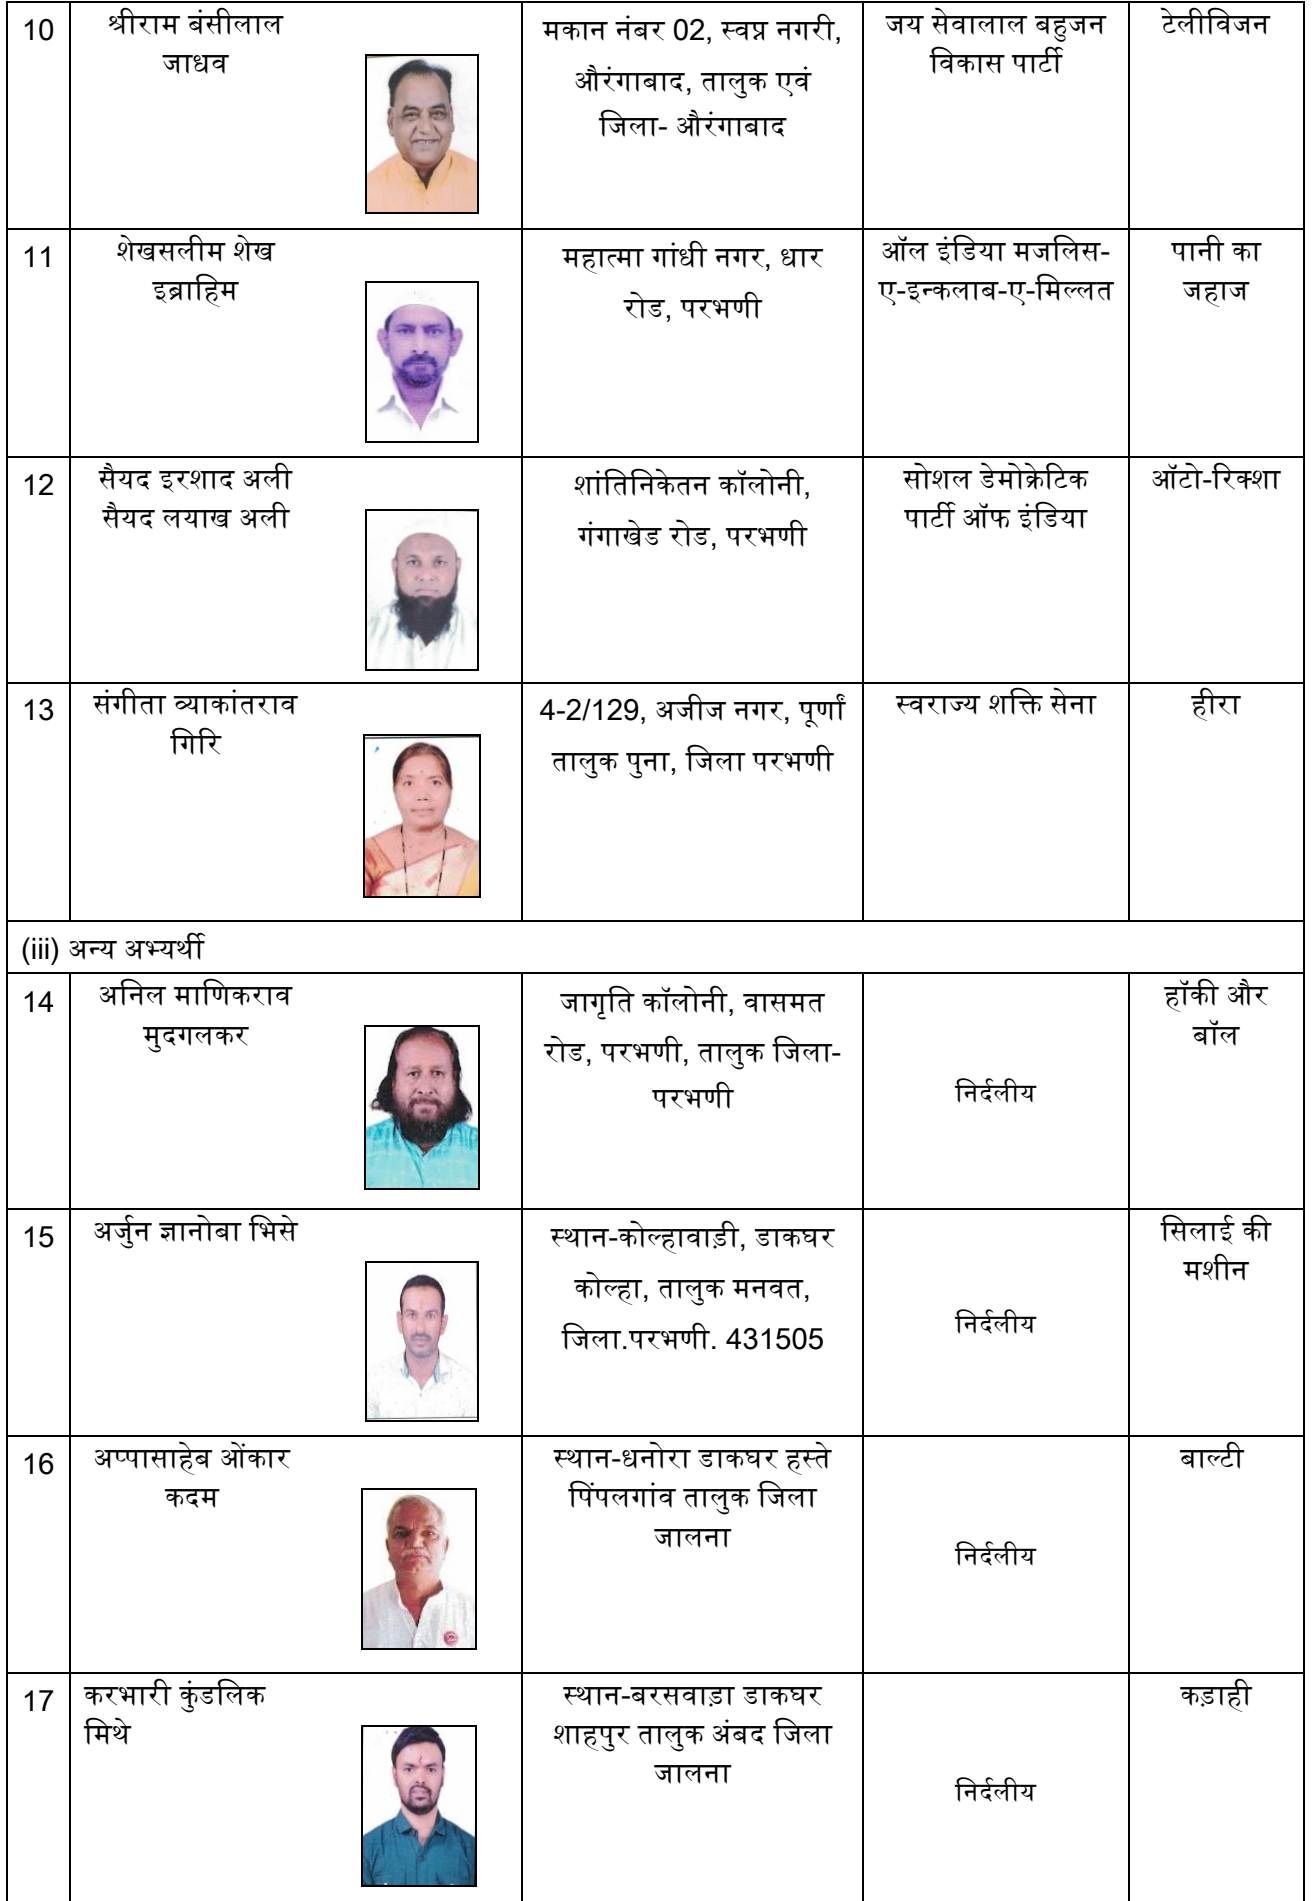 10
श्रीराम बंसीलाल
जाधव
मकान नंबर 02, स्वप्न नगरी,
औरंगाबाद, तालुक एवं
जिला- औरंगाबाद
जय सेवालाल बहुजन
विकास पार्टी
टेलीविजन
11
शेखसलीम शेख
इब्राहिम
महात्मा गांधी नगर, धार
रोड, परभणी
ऑल इंडिया मजलिस-
ए-इन्कलाब-ए-मिल्लत
पानी का
जहाज
12
सैयद इरशाद अली
सैयद लयाख अली
शांतिनिकेतन कॉलोनी,
गंगाखेड रोड, परभणी
सोशल डेमोक्रेटिक
पार्टी ऑफ इंडिया
ऑटो-रिक्शा
13
संगीता व्याकांतराव
गिरि
4-2/129, अजीज नगर, पूर्णां
तालुक पुना, जिला परभणी
स्वराज्य शक्ति सेना
हीरा
(iii) अन्य अभ्यर्थी
14
अनिल माणिकराव
मुदगलकर
जागृति कॉलोनी, वासमत
रोड, परभणी, तालुक जिला-
परभणी
निर्दलीय
हॉकी और
बॉल
15
अर्जुन ज्ञानोबा भिसे
स्थान-कोल्हावाड़ी, डाकघर
कोल्हा, तालुक मनवत,
जिला.परभणी. 431505
निर्दलीय
सिलाई की
मशीन
16
अप्पासाहेब ओंकार
कदम
स्थान-धनोरा डाकघर हस्ते
पिंपलगांव तालुक जिला
जालना
निर्दलीय
बाल्टी
17
करभारी कुंडलिक
मिथे
स्थान-बरसवाड़ा डाकघर
शाहपुर तालुक अंबद जिला
जालना
निर्दलीय
कड़ाही